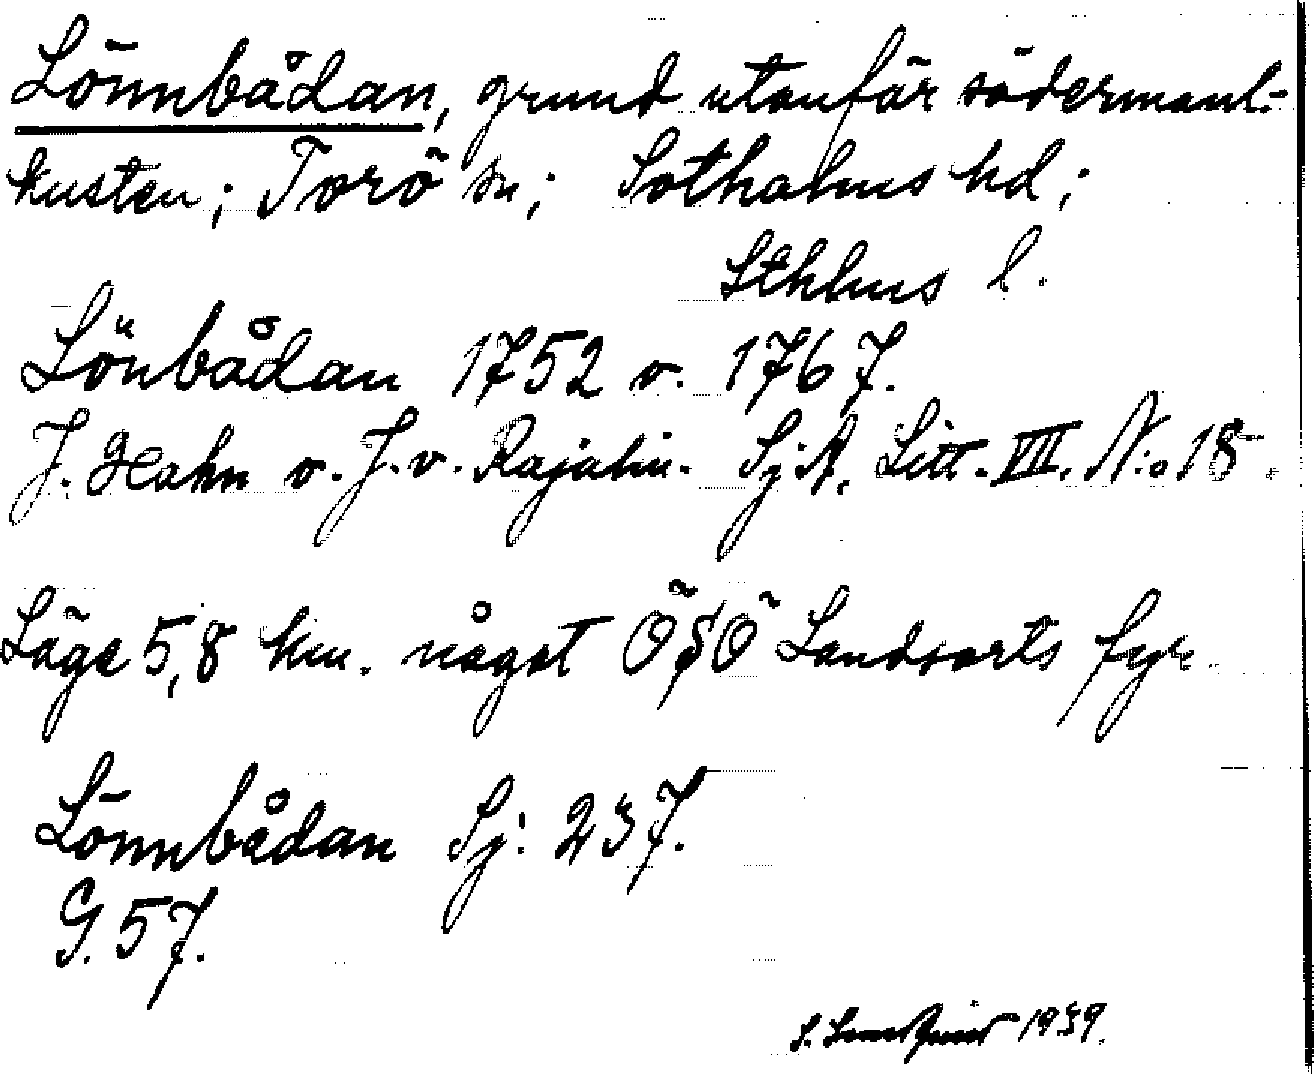 Lönnbådan, grund utanför södermanl.-
kusten; Torö sn; Sotholms hd;
Sthlms l.
Lönbådan 1752 o. 1767.
J. Hahn o. J. v. Rajalin. Sj.A. Litt. VIII. N:o 18.
Läge 5,8 km. något ÖSÖ Landsorts fyr.
Lönnbådan Sj: 237.
G. 57.
S. 1939.